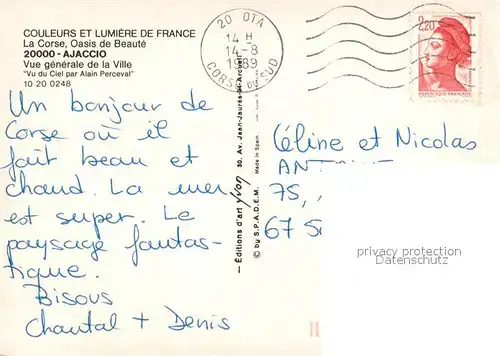 COULEURS ET LUMIÈRE DE FRANCE
La Corse, Oasis de Beauté
20000 - AJACCIO
Vue générale de la Ville
"Vu du Ciel par Alain Perceval"
10 20 0248
Un bonjour de
Corse où il
fait beau et
chaud. La mer
est super. Le
paysage fantas-
tique.
Bisous
Chantal + Denis
– Editions d'art yvon, 30, Av. Jean-Jaurès
© by S.P.A.D.E.M. Made in Spain
20 OTA
14 H
14-8
1989
CORSE DU SUD
2,20
REPUBLIQUE FRANÇAISE
Céline et Nicolas
75,
67
privacy protection
Datenschutz